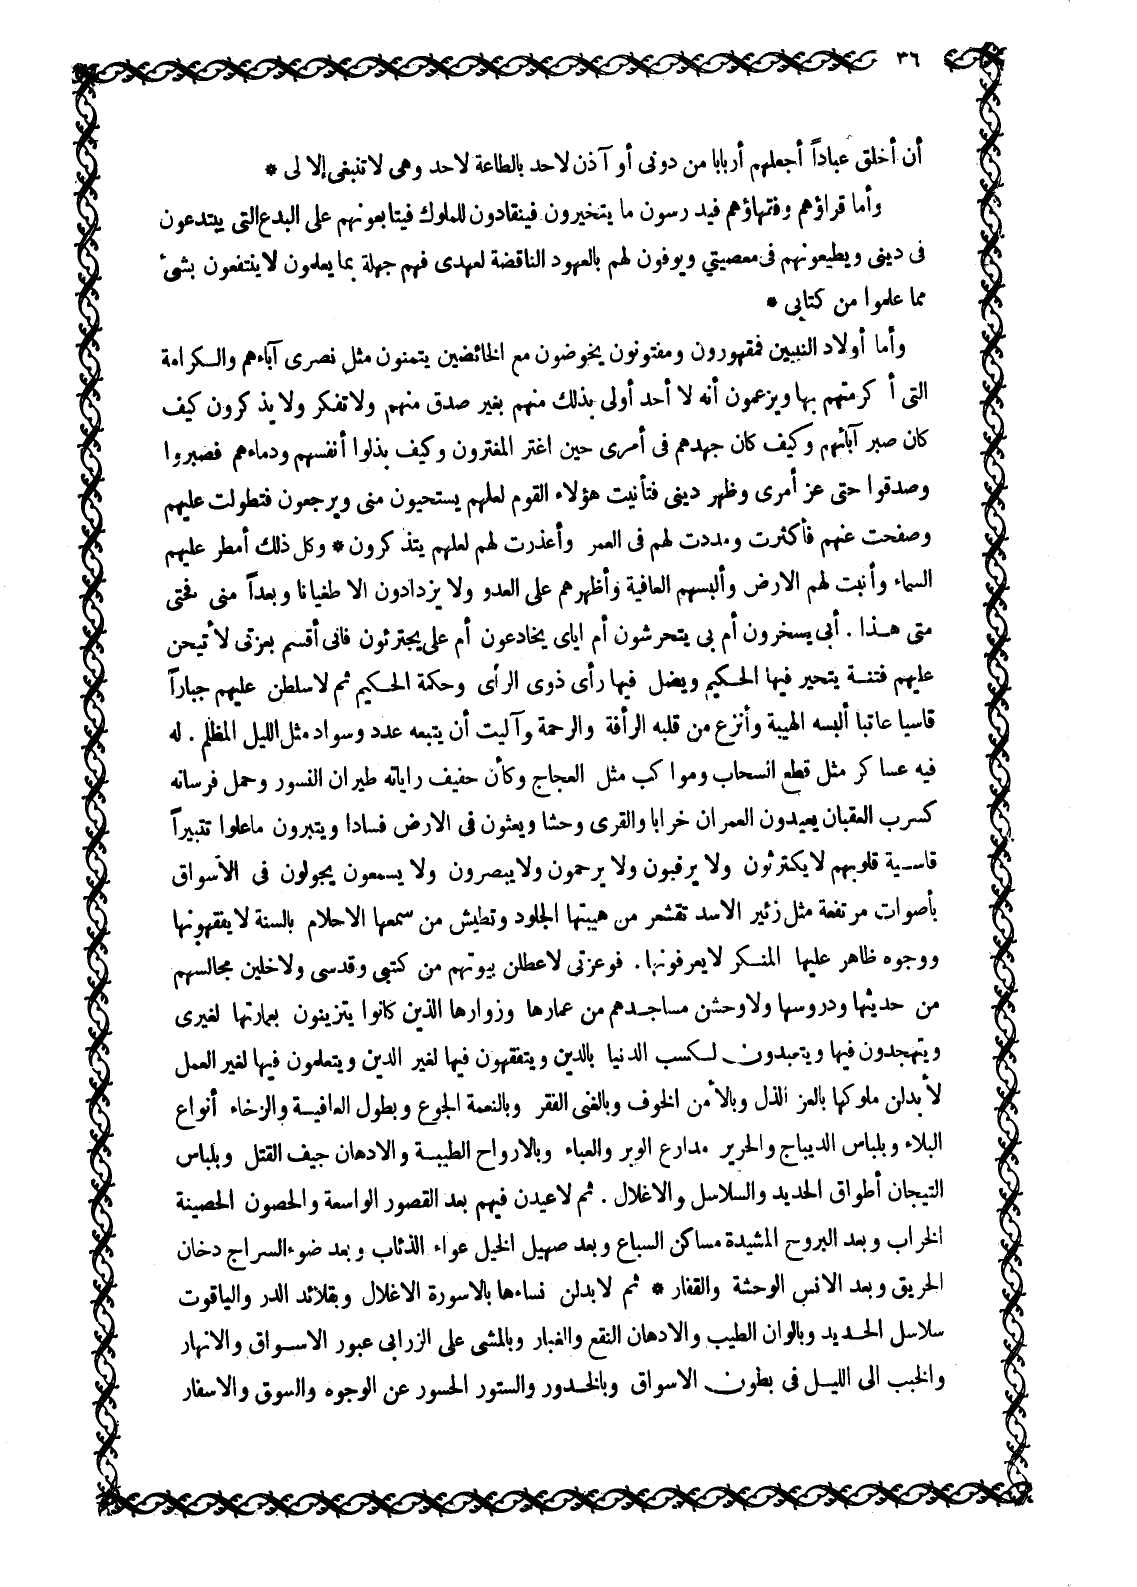 ٣٦
أن أخلق عباداً أجعلهم أربابا من دونى أو آذن لاحد بالطاعة لاحد وهى لا تنبغى إلا لى *
وأما قراؤهم وفقهاؤهم فيدرسون ما يتخيرون فينقادون للملوك فيتابعونهم على البدع التى يبتدعون
فى دينى ويطيعونهم فى معصيتي ويوفون لهم بالعهود الناقضة لعهدى فهم جهلة بما يعلمون لا ينتفعون بشىء
مما علموا من كتابى *
وأما أولاد النبيين فمقهورون ومفتونون يخوضون مع الخائضين يتمنون مثل نصرى آباءهم والكرامة
التى أكرمتهم بها ويزعمون أنه لا أحد أولى بذلك منهم بغير صدق منهم ولا تفكر ولا يذكرون كيف
كان صبر آبائهم وكيف كان جهدهم فى أمرى حين اغتر المغترون وكيف بذلوا أنفسهم ودماءهم فصبروا
وصدقوا حتى عز أمرى وظهر دينى فتأنيت هؤلاء القوم لعلهم يستحيون منى ويرجعون فتطولت عليهم
وصفحت عنهم فأكثرت ومددت لهم فى العمر وأعذرت لهم لعلهم يتذكرون * وكل ذلك أمطر عليهم
السماء وأنبت لهم الارض وألبسهم العافية وأظهرهم على العدو ولا يزدادون الا طغيانا وبعداً منى فحتى
متى هذا . أبى يسخرون أم بى يتحرشون أم اياى يخادعون أم على يجترئون فانى أقسم بعزتى لأتيحن
عليهم فتنة يتحير فيها الحكيم ويضل فيها رأى ذوى الرأى وحكمة الحكيم ثم لاسلطن عليهم جباراً
قاسيا عاتبا ألبسه الهيبة وأنزع من قلبه الرأفة والرحمة وآليت أن يتبعه عدد وسواد مثل الليل المظلم . له
فيه عساكر مثل قطع السحاب ومواكب مثل العجاج وكأن حفيف راياته طيران النسور وحمل فرسانه
كسرب العقبان يعيدون العمران خرابا والقرى وحشا ويعثون فى الارض فسادا ويتبرون ما علوا تتبيراً
قاسية قلوبهم لا يكترثون ولا يرقبون ولا يرحمون ولا يبصرون ولا يسمعون يجولون فى الأسواق
بأصوات مرتفعة مثل زئير الاسد تقشعر من هيبتها الجلود وتطيش من سمعها الاحلام بالسنة لا يفقهونها
ووجوه ظاهر عليها المنكر لا يعرفونها . فوعزتى لاعطلن بيوتهم من كتبى وقدسى ولاخلين مجالسهم
من حديثها ودروسها ولاوحشن مساجدهم من عمارها وزوارها الذين كانوا يتزينون بعمارتها لغيرى
ويتهجدون فيها ويتعبدون لكسب الدنيا بالدين ويتفقهون فيها لغير الدين ويتعلمون فيها لغير العمل
لأبدلن ملوكها بالعز الذل وبالأمن الخوف وبالغنى الفقر وبالنعمة الجوع وبطول العافية والرخاء أنواع
البلاء وبلباس الديباج والحرير مدارع الوبر والعباء وبالارواح الطيبة والادهان جيف القتل وبلباس
التيجان أطواق الحديد والسلاسل والاغلال . ثم لاعيدن فيهم بعد القصور الواسعة والحصون الحصينة
الخراب وبعد البروج المشيدة مساكن السباع وبعد صهيل الخيل عواء الذئاب وبعد ضوء السراج دخان
الحريق وبعد الانس الوحشة والقفار * ثم لابدلن نساءها بالاسورة الاغلال وبقلائد الدر والياقوت
سلاسل الحديد وبالوان الطيب والادهان النقع والغبار وبالمشى على الزرابى عبور الاسواق والانهار
والخبب الى الليل فى بطون الاسواق وبالخدور والستور الحسور عن الوجوه والسوق والاسفار